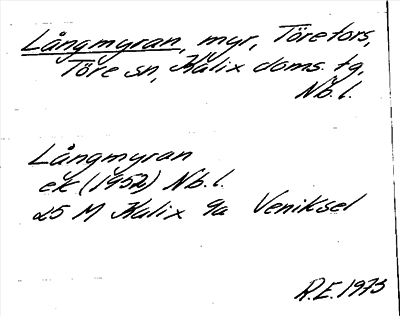 Långmyran, myr, Törefors,
Töre sn, Kalix doms. tg,
Nb.l.
Långmyran
ek (1952) Nb.l.
25 M Kalix 9a Veniksel
R.E. 1973